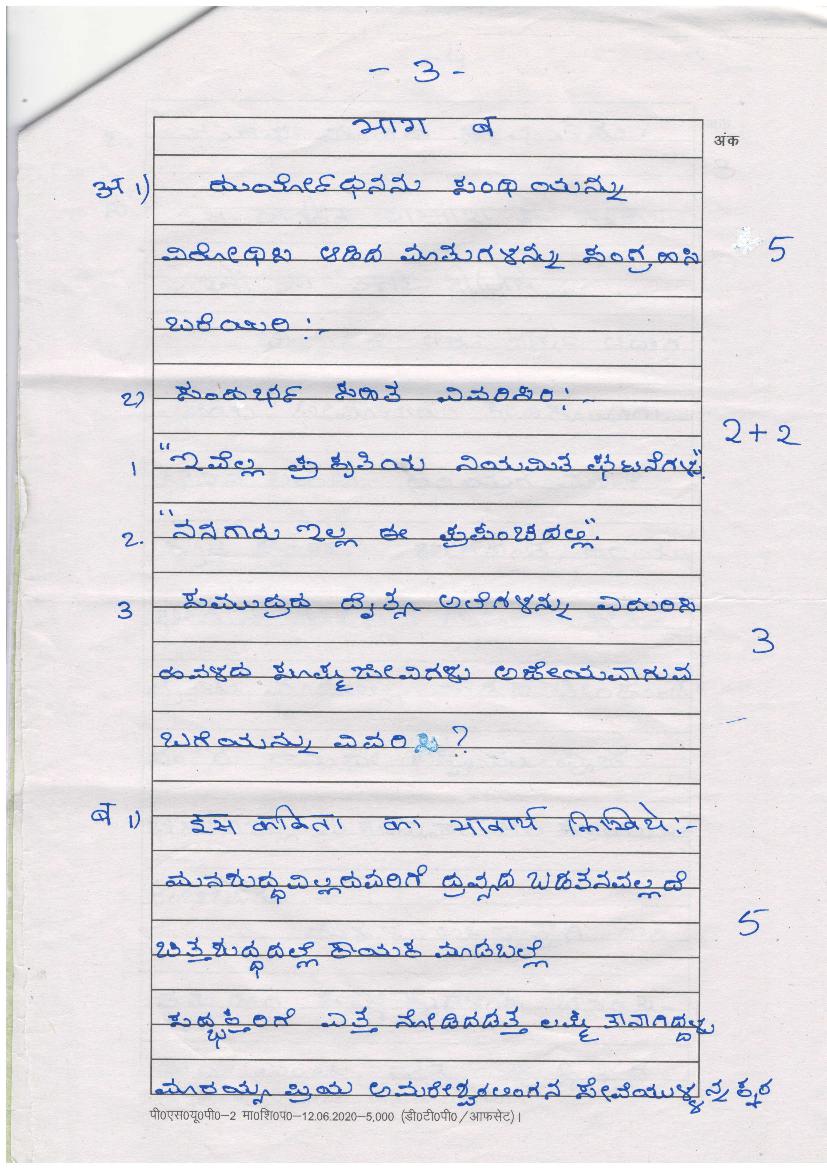 - 3 -
भाग ब
अंक
अ १) ದುರ್ಯೋಧನನು ಸಂಧಿಯನ್ನು
ವಿರೋಧಿಸಿ ಆಡಿದ ಮಾತುಗಳನ್ನು ಸಂಗ್ರಹಿಸಿ 5
ಬರೆಯಿರಿ :-
2) ಸಂದರ್ಭ ಸಹಿತ ವಿವರಿಸಿರಿ:-
2+2
1 "ಇವೆಲ್ಲ ಪ್ರಕೃತಿಯ ನಿಯಮಿತ ಘಟನೆಗಳು".
2. "ನನಗಾರು ಇಲ್ಲ ಈ ಪ್ರಪಂಚದಲ್ಲಿ".
3 ಸಮುದ್ರದ ದೈತ್ಯ ಅಲೆಗಳನ್ನು ಎದುರಿಸಿ
3
ಹವಳದ ಸೂಕ್ಷ್ಮಜೀವಿಗಳು ಅಜೇಯವಾಗುವ
ಬಗೆಯನ್ನು ವಿವರಿಸಿ ?
ब १) इस कविता का भावार्थ लिखिये:-
ಮನಶುದ್ಧವಿಲ್ಲದವರಿಗೆ ದ್ರವ್ಯದ ಬಡತನವಲ್ಲದೆ
5
ಚಿತ್ತಶುದ್ಧದಲ್ಲಿ ಕಾಯಕ ಮಾಡಬಲ್ಲೆ
ಸದ್ಭಕ್ತರಿಗೆ ಎತ್ತ ನೋಡಿದಡತ್ತ ಲಕ್ಷ್ಮಿ ತಾನಾಗಿದ್ದಳು
ಮಾರಯ್ಯ ಪ್ರಿಯ ಅಮರೇಶ್ವರಲಿಂಗದ ಸೇವೆಯುಳ್ಳನ್ನಕ್ಕರ
पी०एस०यू०पी०-2 मा०शि०प०-12.06.2020-5,000 (डी०टी०पी०/आफसेट)।